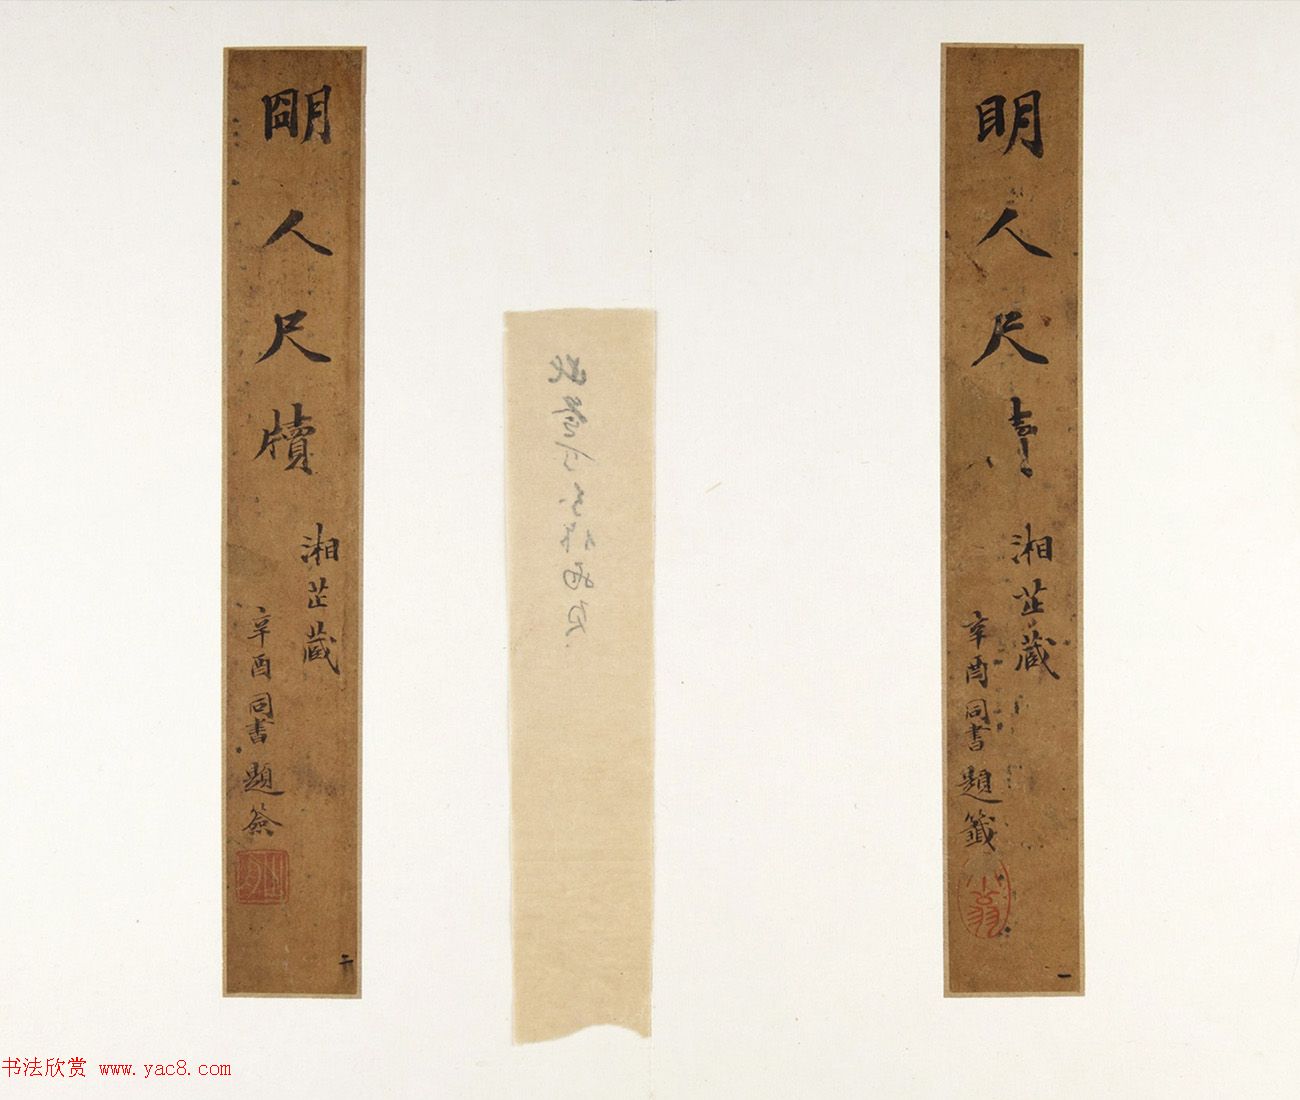 明人尺
湘芷藏
辛酉同書題籤
小翁
一
明人尺牘
湘芷藏
辛酉同書題簽
二
书法欣赏 www.yac8.com